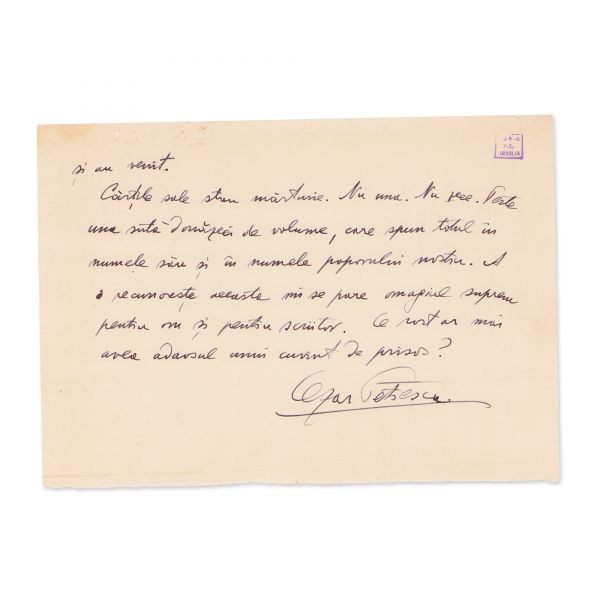 și au venit.
Cărțile sale stau mărturie. Nu una. Nu zece. Peste
una sută douăzeci de volume, care spun totul în
numele său și în numele poporului nostru. A
o recunoaște aceasta mi se pare omagiul suprem
pentru om și pentru scriitor. Ce rost ar mai
avea adaosul unui cuvânt de prisos?
Cezar Petrescu